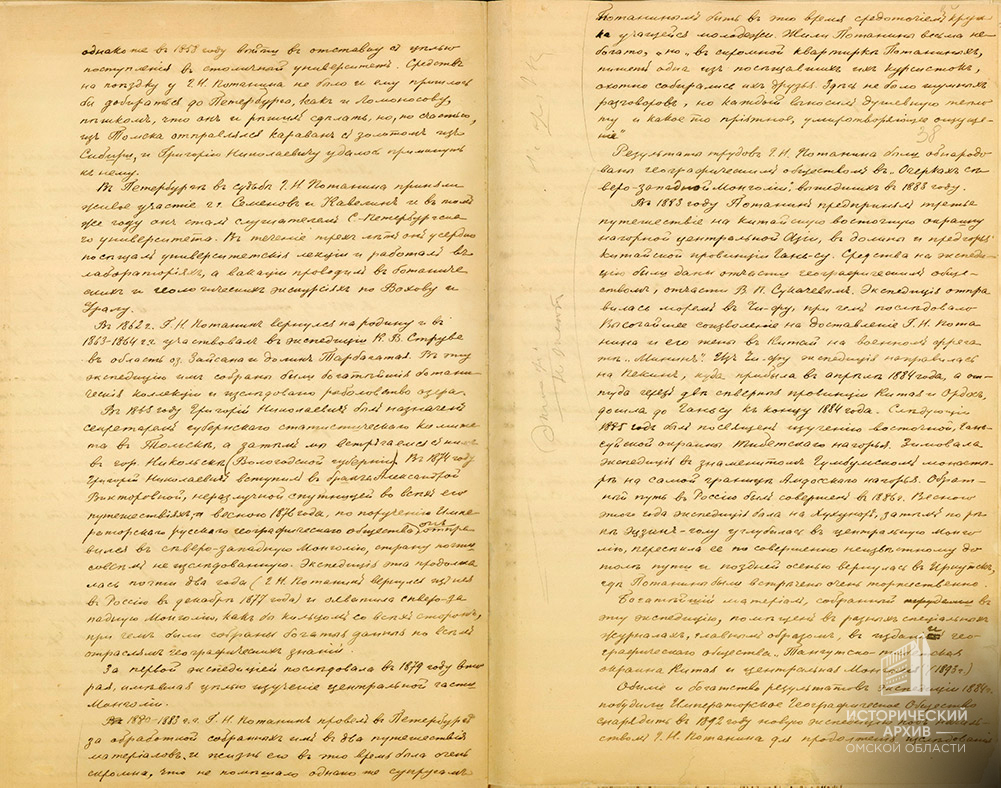 однако же въ 1858 году выйти въ отставку съ цѣлью
поступленія въ столичный университетъ. Средствъ
на поѣздку у Г. Н. Потанина не было и ему пришлось
бы добираться до Петербурга, какъ и Ломоносову,
пѣшкомъ, что онъ и рѣшилъ сдѣлать, но, по счастью,
изъ Томска отправлялся караванъ съ золотомъ изъ
Сибири, и Григорію Николаевичу удалось примкнуть
къ нему.
Въ Петербургѣ въ судьбѣ Г. Н. Потанина приняли
живое участіе г.г. Семеновъ и Кавелинъ и въ томъ
же году онъ сталъ слушателемъ С.-Петербургска-
го университета. Въ теченіе трехъ лѣтъ онъ усердно
посѣщалъ университетскія лекціи и работалъ въ
лабораторіяхъ, а вакаціи проводилъ въ ботаниче-
скихъ и геологическихъ экскурсіяхъ по Волхову и
Уралу.
Въ 1862 г. Г. Н. Потанинъ вернулся на родину и въ
1863-1864 г.г. участвовалъ въ экспедиціи К. В. Струве
въ область оз. Зайсана и долину Тарбагатая. Въ эту
экспедицію имъ собраны были богатѣйшія ботани-
ческія коллекціи и изслѣдовано рыболовство озера.
Въ 1865 году Григорій Николаевичъ былъ назначенъ
секретаремъ губернскаго статистическаго комите-
та въ Томскѣ, а затѣмъ мы встрѣчаемся съ нимъ
въ гор. Никольскѣ (Вологодской губерніи). Въ 1874 году
Григорій Николаевичъ вступилъ въ бракъ съ Александрой
Викторовной, неразлучной спутницей во всѣхъ его
путешествіяхъ, и весною 1876 года, по порученію Импе-
раторскаго русскаго географическаго общества, онъ отпра-
вился въ сѣверо-западную Монголію, страну почти
совсѣмъ не изслѣдованную. Экспедиція эта продолжа-
лась почти два года (Г. Н. Потанинъ вернулся изъ нея
въ Россію въ декабрѣ 1877 года) и охватила сѣверо-за-
падную Монголію, какъ бы кольцомъ со всѣхъ сторонъ,
при чемъ были собраны богатыя данныя по всѣмъ
отраслямъ географическихъ знаній.
За первой экспедиціей послѣдовала въ 1879 году вто-
рая, имѣвшая цѣлью изученіе центральной части
Монголіи.
Въ 1880-1883 г.г. Г. Н. Потанинъ провелъ въ Петербургѣ
за обработкой собранныхъ имъ въ два путешествія
матеріаловъ, и жизнь его въ это время была очень
скромна, что не помѣшало однако же супругамъ
Потанинымъ быть въ это время средоточіемъ круж-
ка учащейся молодежи. Жили Потанины весьма не-
богато, „но „въ скромной квартиркѣ Потаниныхъ,
пишетъ одна изъ посѣщавшихъ ихъ курсистокъ,
охотно собирались ихъ друзья. Здѣсь не было шумныхъ
разговоровъ, но каждый вносилъ душевную тепло-
ту и какое-то пріятное, умиротворяющее ощуще-
ніе"
38
Результаты трудовъ Г. Н. Потанина были обнародо-
ваны географическимъ обществомъ въ „Очеркахъ сѣ-
веро-западной Монголіи", вышедшихъ въ 1883 году.
Въ 1883 году Потанинъ предпринялъ третье
путешествіе на китайскую восточную окраину
нагорной центральной Азіи, въ долины и предгорья
китайской провинціи Гань-су. Средства на экспеди-
цію были даны отчасти географическимъ обще-
ствомъ, отчасти В. П. Сукачевымъ. Экспедиція отпра-
вилась моремъ въ Чи-фу, при чемъ послѣдовало
Высочайшее соизволеніе на доставленіе Г. Н. Пота-
нина и его жены въ Китай на военномъ фрега-
тѣ „Мининъ". Изъ Чи-фу экспедиція направилась
на Пекинъ, куда прибыла въ апрѣлѣ 1884 года, а от-
туда чрезъ двѣ сѣверныя провинціи Китая и Ордосъ,
дошла до Ганьсу къ концу 1884 года. Слѣдующій
1885 годъ былъ посвященъ изученію восточной, Гань-
суйской окраины Тибетскаго нагорья. Зимовала
экспедиція въ знаменитомъ Гумбумскомъ монасты-
рѣ на самой границѣ Амдосскаго нагорья. Обрат-
ный путь въ Россію былъ совершенъ въ 1886 г. Весною
этого года экспедиція была на Хухунорѣ, затѣмъ по рѣ-
кѣ Эдзинъ-голу углубилась въ центральную Монго-
лію, пересѣкла ее по совершенно неизвѣстному до
того пути и поздней осенью вернулась въ Иркутскъ,
гдѣ Потанины были встрѣчены очень торжественно.
Богатѣйшій матеріалъ, собранный трудами въ
эту экспедицію, помѣщенъ въ разныхъ спеціальныхъ
журналахъ, главнымъ образомъ, въ изданіи гео-
графическаго общества „Тангутско-тибетская
окраина Китая и центральная Монголія" (1893 г.)
Обиліе и богатство результатовъ экспедиціи 1884 г.
побудили Императорское Географическое Общество
снарядить въ 1892 году новую экспедицію подъ началь-
ствомъ Г. Н. Потанина для продолженія изслѣдованій
ИСТОРИЧЕСКИЙ
АРХИВ
ОМСКОЙ ОБЛАСТИ